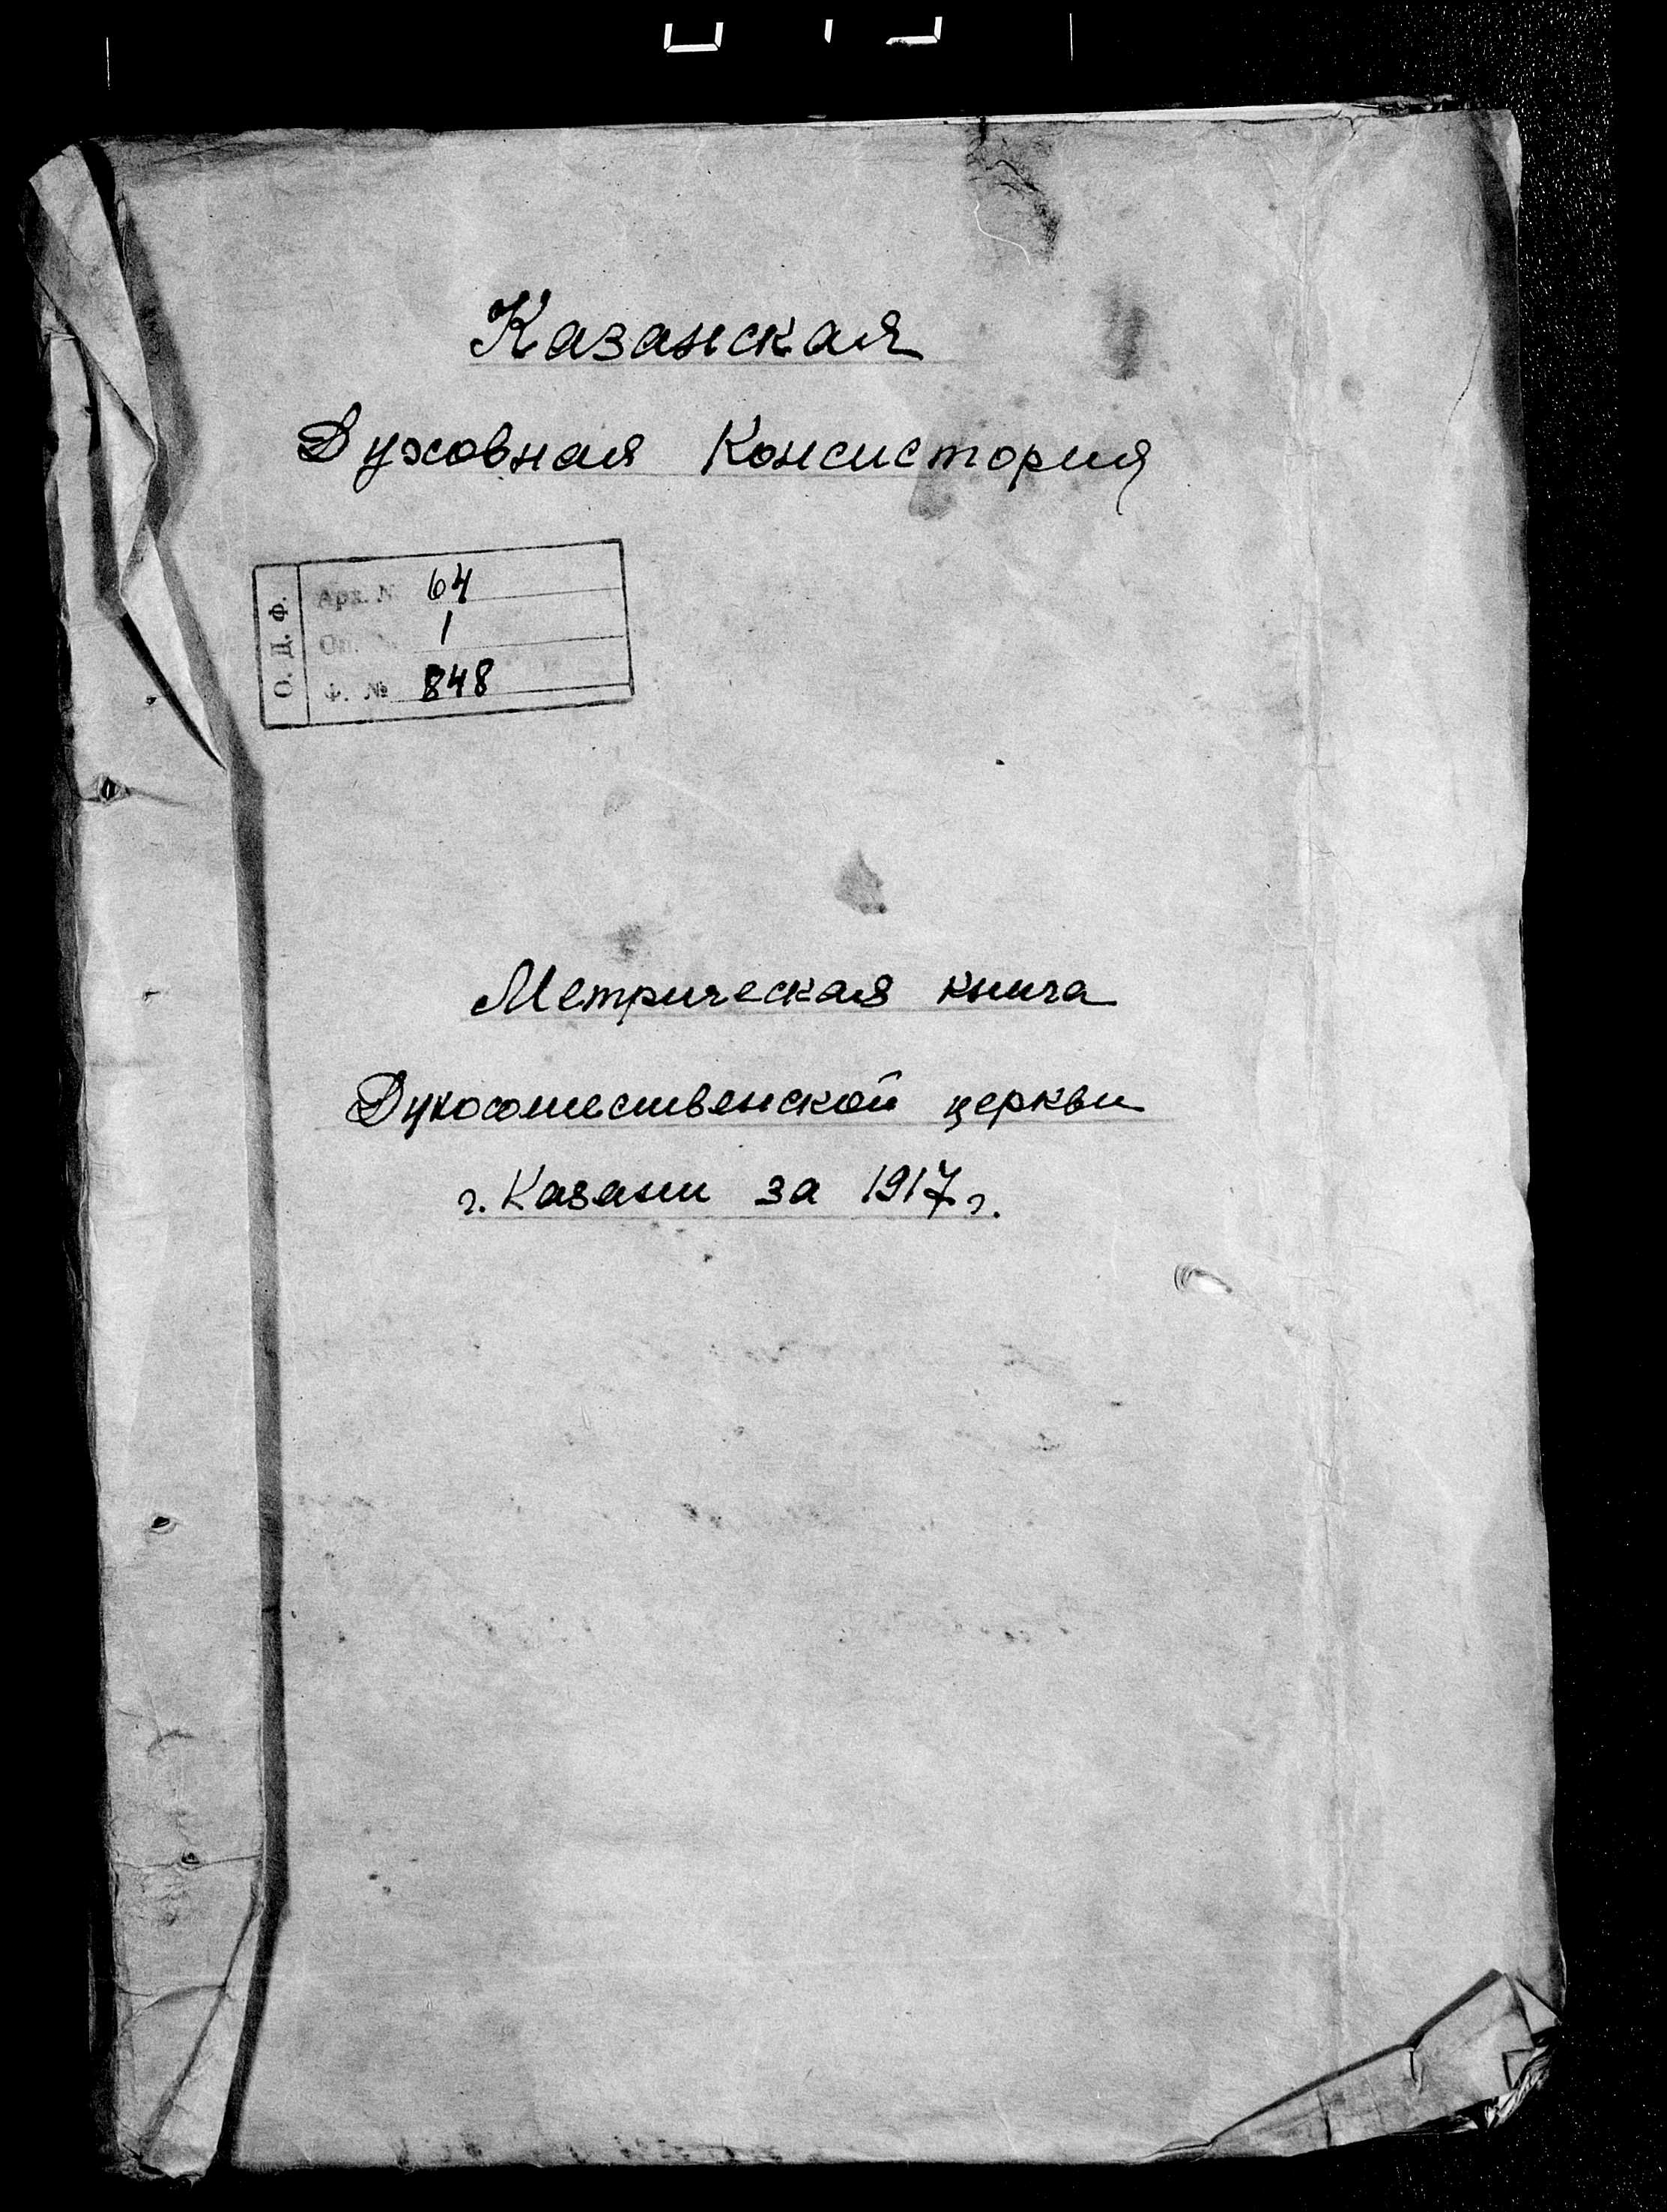 Казанская
Духовная Консистория
О. Д. Ф.
Арх. № 64
Оп. № 1
Ф. № 848
Метрическая книга
Духосошественской церкви
г. Казани за 1917 г.